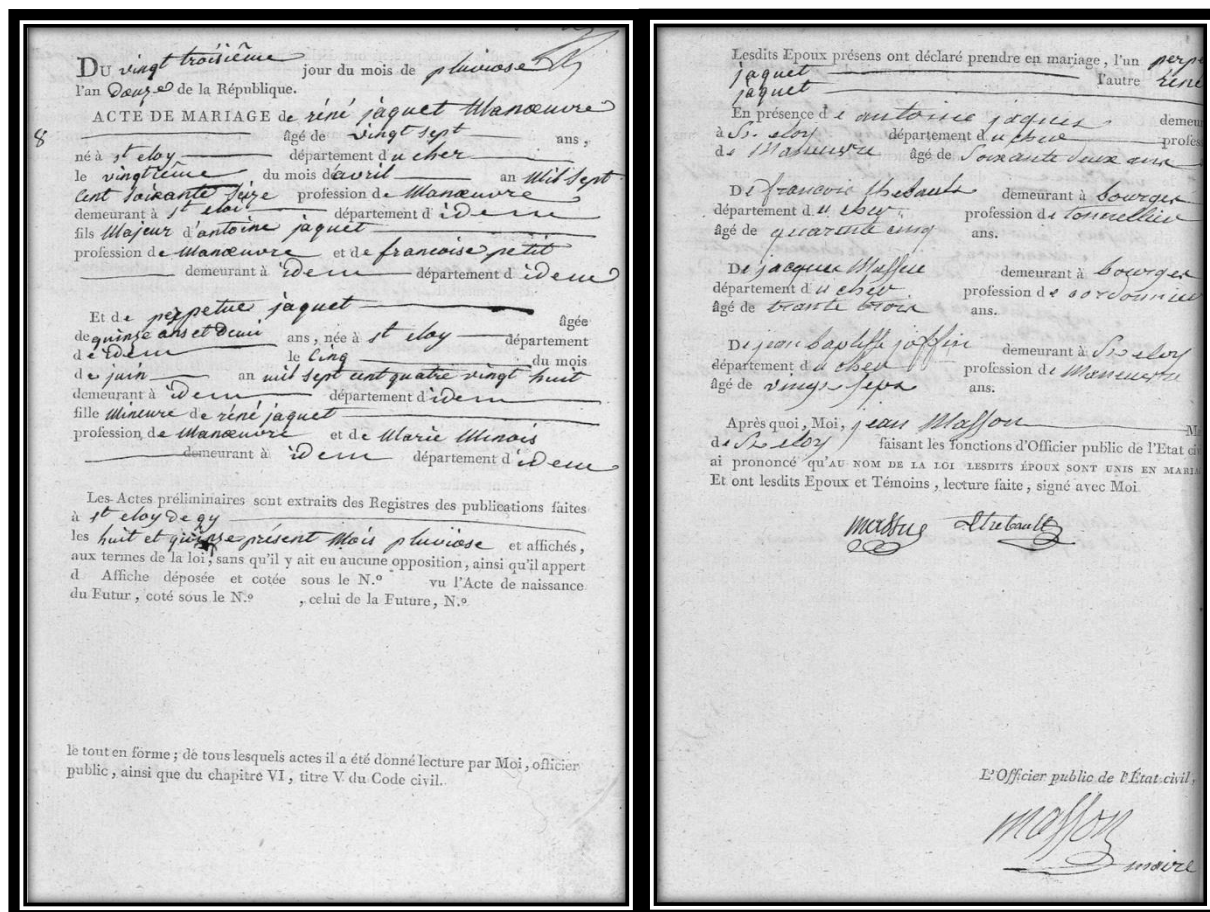 DU vingt troisième jour du mois de pluviose
l'an Douze de la République.
8
ACTE DE MARIAGE de réné jaquet Manœuvre
âgé de vingt sept ans,
né à st eloy département du cher
le vingtième du mois d'avril an Mil Sept
Cent Soixante Seize profession de Manœuvre
demeurant à st eloi département d idem
fils Majeur d'antoine jaquet
profession de Manœuvre et de francoise petit
demeurant à idem département d idem
Et de perpetue jaquet âgée
de quinse ans et demi ans, née à st eloy département
d idem le Cinq du mois
de juin an mil sept cent quatre vingt huit
demeurant à idem département d idem
fille Mineure de réné jaquet
profession de Manœuvre et de Marie Minois
demeurant à idem département d idem
Les Actes préliminaires sont extraits des Registres des publications faites
à st eloy de gy
les huit et quinse présent Mois pluviose et affichés,
aux termes de la loi, sans qu'il y ait eu aucune opposition, ainsi qu'il appert
d Affiche déposée et cotée sous le N.º vu l'Acte de naissance
du Futur, coté sous le N.º , celui de la Future, N.º
le tout en forme; de tous lesquels actes il a été donné lecture par Moi, officier
public, ainsi que du chapitre VI, titre V du Code civil.
Lesdits Epoux présens ont déclaré prendre en mariage, l'un perpe
jaquet l'autre réné
jaquet
En présence de antoine jaques demeu
à St eloy département du cher profess
de Maneuvre âgé de Soixante deux ans
De francois thebault demeurant à bourges
département du cher profession de tonnellier
âgé de quarante cinq ans.
De jacques Massue demeurant à bourges
département du cher profession de cordonnier
âgé de trante trois ans.
De jean baptiste joffin demeurant à St eloy
département du cher profession de Maneuvre
âgé de vingt sept ans.
Après quoi, Moi, jean Masson Me
de St eloy faisant les fonctions d'Officier public de l'Etat civ
ai prononcé qu'AU NOM DE LA LOI LESDITS ÉPOUX SONT UNIS EN MARIA
Et ont lesdits Epoux et Témoins, lecture faite, signé avec Moi
massue thebault
L'Officier public de l'État civil,
masson
maire